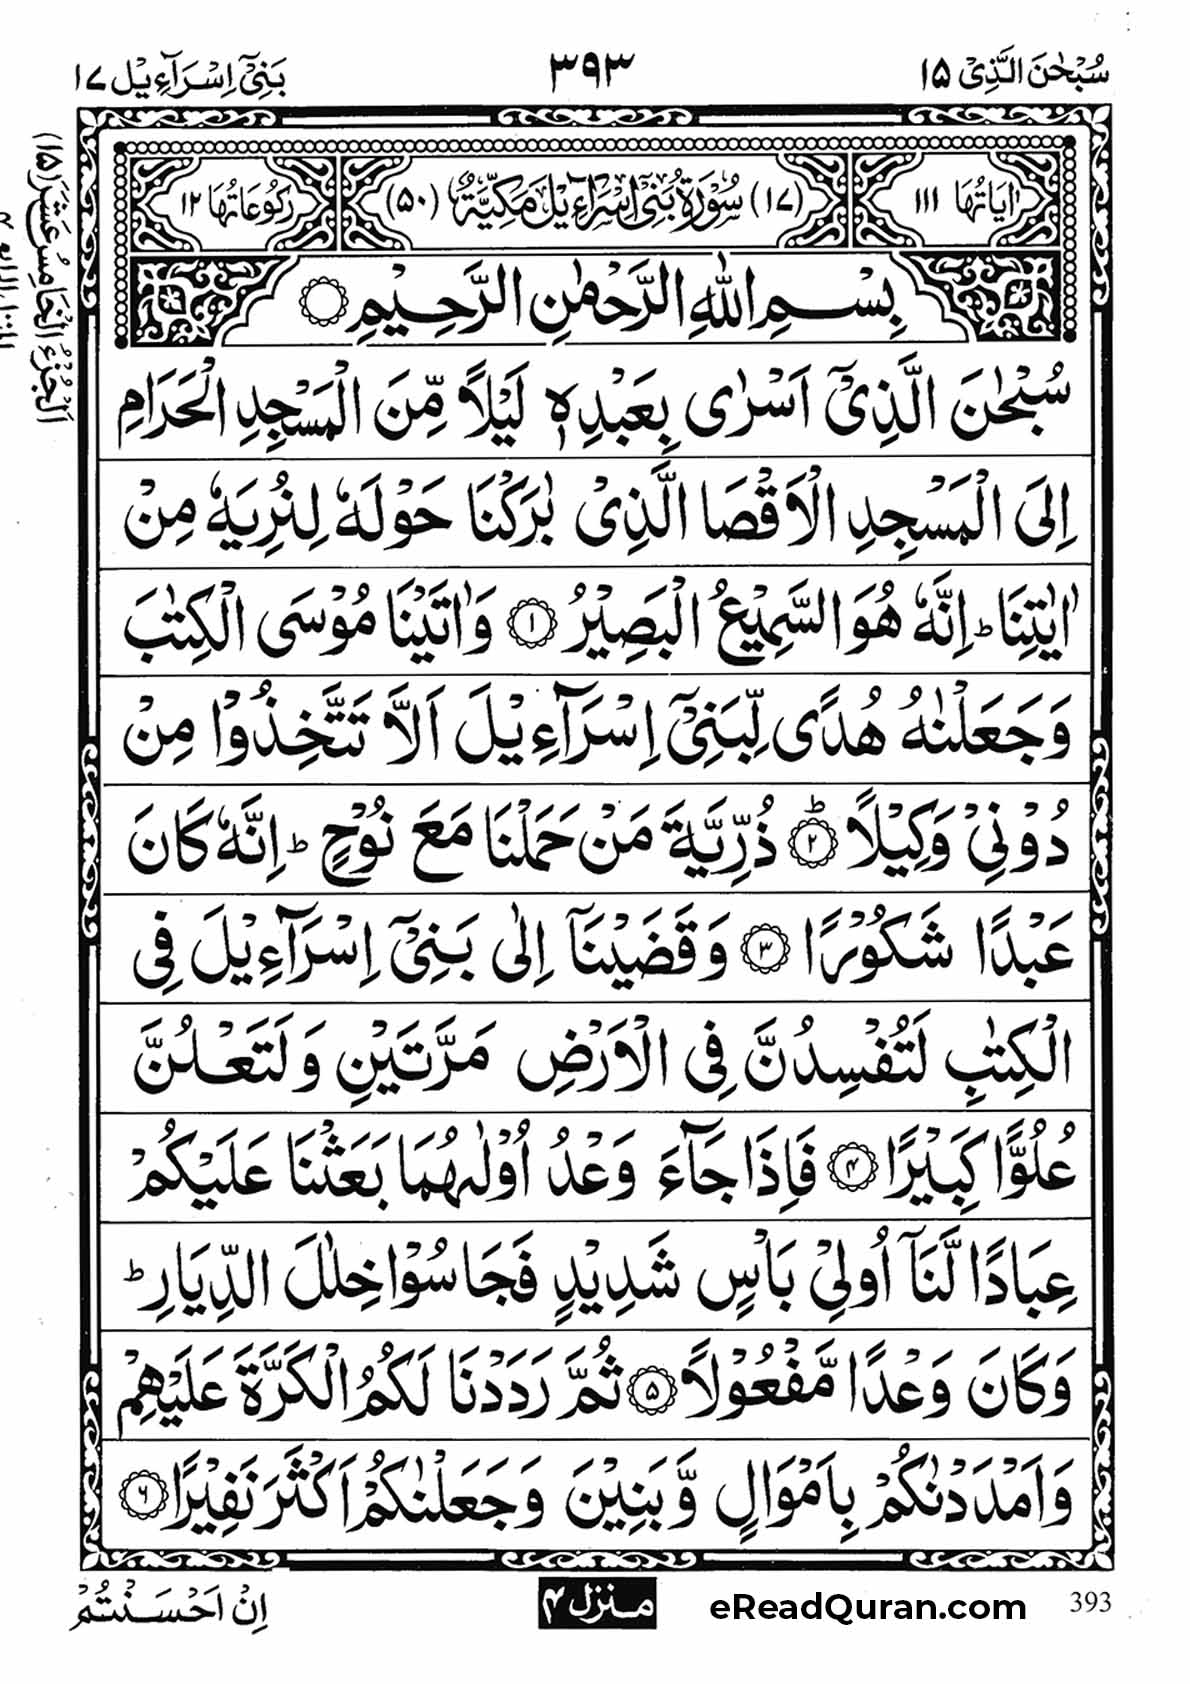 سُبْحٰنَ الَّذِیْۤ ۱۵
۳۹۳
بَنِیْۤ اِسْرَآءِیْل ۱۷
اَلْجُزْءُ الْخَامِسُ عَشَرَ (۱۵)
اٰیَاتُهَا ۱۱۱
(۱۷) سُوْرَةُ بَنِیْۤ اِسْرَآءِیْلَ مَكِّیَّةٌ (۵۰)
رُكُوْعَاتُهَا ۱۲
بِسْمِ اللّٰهِ الرَّحْمٰنِ الرَّحِیْمِ
سُبْحٰنَ الَّذِیْۤ اَسْرٰی بِعَبْدِهٖ لَیْلًا مِّنَ الْمَسْجِدِ الْحَرَامِ
اِلَی الْمَسْجِدِ الْاَقْصَا الَّذِیْ بٰرَكْنَا حَوْلَهٗ لِنُرِیَهٗ مِنْ
اٰیٰتِنَا ؕ اِنَّهٗ هُوَ السَّمِیْعُ الْبَصِیْرُ ۱ وَاٰتَیْنَا مُوْسَی الْكِتٰبَ
وَجَعَلْنٰهُ هُدًی لِّبَنِیْۤ اِسْرَآءِیْلَ اَلَّا تَتَّخِذُوْا مِنْ
دُوْنِیْ وَكِیْلًا ؕ ۲ ذُرِّیَّةَ مَنْ حَمَلْنَا مَعَ نُوْحٍ ؕ اِنَّهٗ كَانَ
عَبْدًا شَكُوْرًا ۳ وَقَضَیْنَاۤ اِلٰی بَنِیْۤ اِسْرَآءِیْلَ فِی
الْكِتٰبِ لَتُفْسِدُنَّ فِی الْاَرْضِ مَرَّتَیْنِ وَلَتَعْلُنَّ
عُلُوًّا كَبِیْرًا ۴ فَاِذَا جَآءَ وَعْدُ اُوْلٰىهُمَا بَعَثْنَا عَلَیْكُمْ
عِبَادًا لَّنَاۤ اُولِیْ بَاْسٍ شَدِیْدٍ فَجَاسُوْا خِلٰلَ الدِّیَارِ ؕ
وَكَانَ وَعْدًا مَّفْعُوْلًا ۵ ثُمَّ رَدَدْنَا لَكُمُ الْكَرَّةَ عَلَیْهِمْ
وَاَمْدَدْنٰكُمْ بِاَمْوَالٍ وَّبَنِیْنَ وَجَعَلْنٰكُمْ اَكْثَرَ نَفِیْرًا ۶
393
eReadQuran.com
منزل ۴
اِنْ اَحْسَنْتُمْ